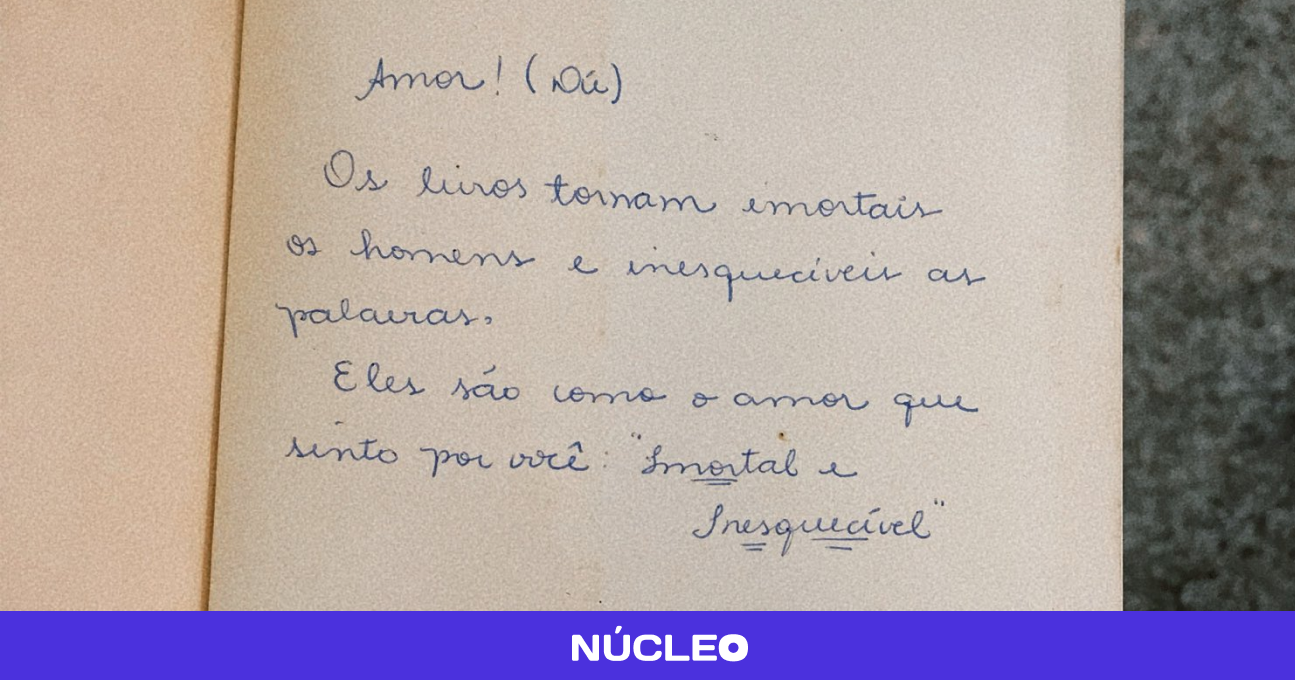 Amor! (Dú)
Os livros tornam imortais
os homens e inesquecíveis as
palavras.
Eles são como o amor que
sinto por você: "Imortal e
Inesquecível"
NÚCLEO